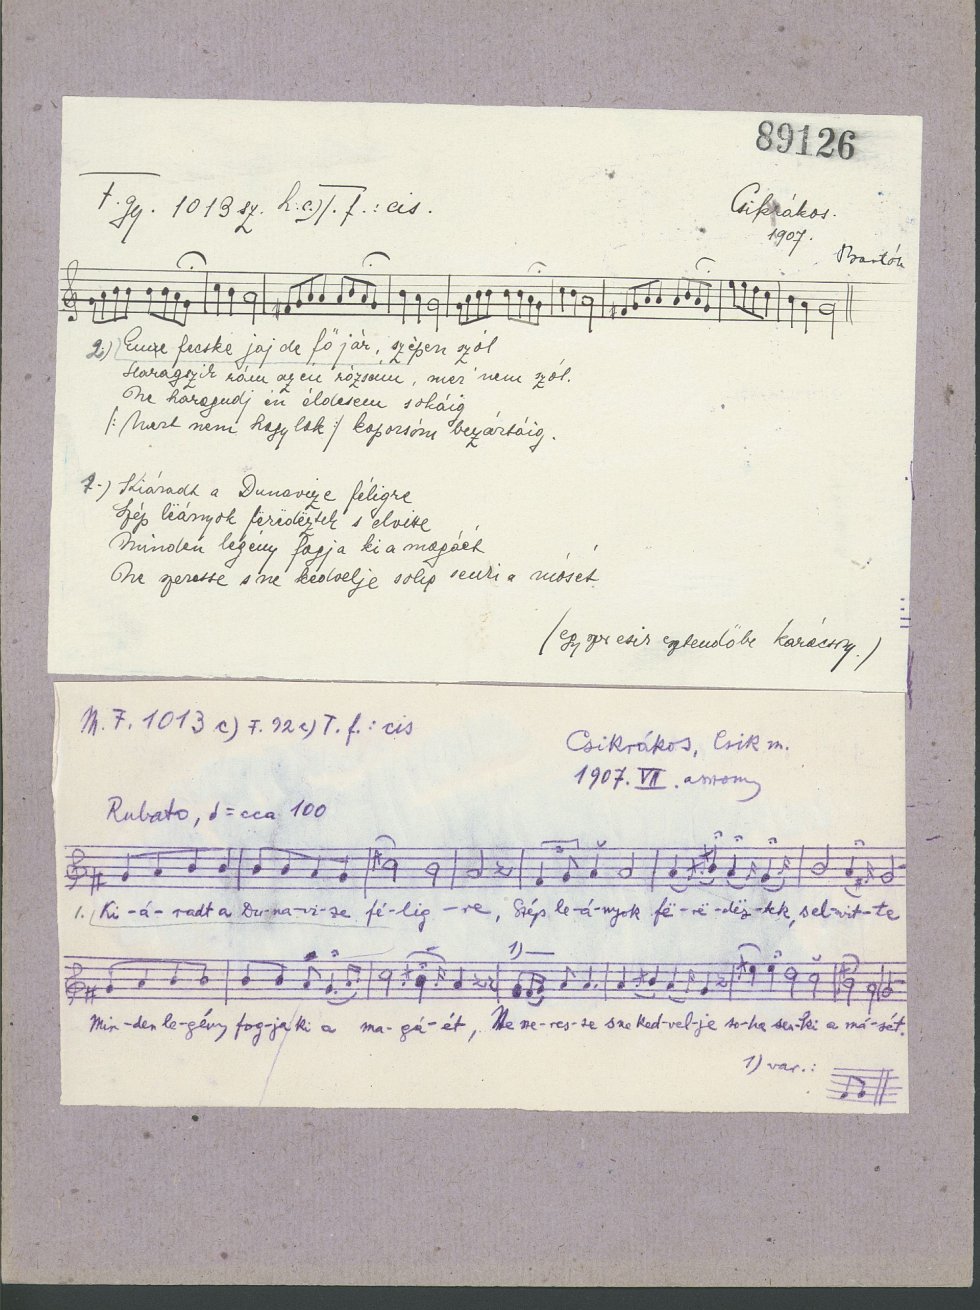 89126
F. gy. 1013 sz. h: c) T. f. : cis.
Csikrákos.
1907.
Bartók
2.) fecske jaj de fő jár, szépen szól
Haragszik rám az én rózsám, mer' nem szól.
Ne haragudj én édesem sokáig
/: Mert nem hagylak :/ koporsóm bezártáig.
1.) Kiáradt a Dunavize féligre
Szép lëányok fërëdëztek s elvitte
Minden legény fogja ki a magáét
Ne szeresse s ne kedvelje soha senki a másét
(egyszer esik esztendőbe karácsony.)
M. F. 1013 c) F. 92 c) T. f. : cis
Csikrákos, Csik m.
1907. VII. asszony
Rubato, = cca 100
1. Ki-á-radt a Du-na-vi-ze fé-lig-re, Szép le-á-nyok fë-rë-dëz-tek, sel-vit-te
1)
Min-den le-gény fog-ja ki a ma-gá-ét, Ne sze-res-se s ne ked-vel-je so-ha sen-ki a má-sét.
1) var. :